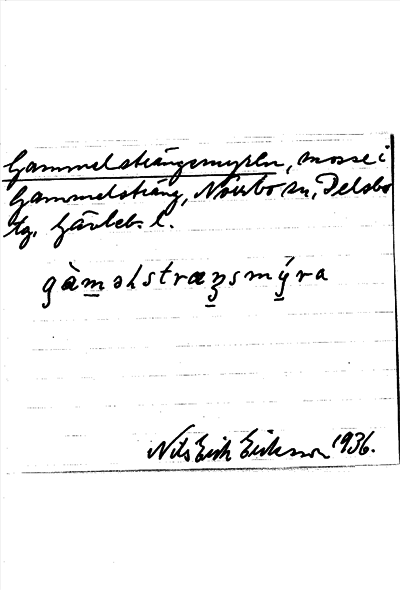 Gammelsträngsmyren, mosse i
Gammelsträng, Norrbo sn, Delsbo
tg. Gävleb. l.
gàməlstræŋsmýra
Nils Erik Eriksson 1936.